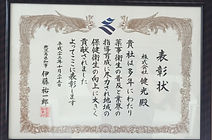 表彰状
株式会社 健光 殿
貴社は多年にわたり
薬事衛生の普及と業界の
指導育成に尽力され地域の
保健衛生の向上に大きく
貢献されました
よってここに表彰します
平成二十二年十月二十二日
鹿児島県知事 伊藤祐一郎